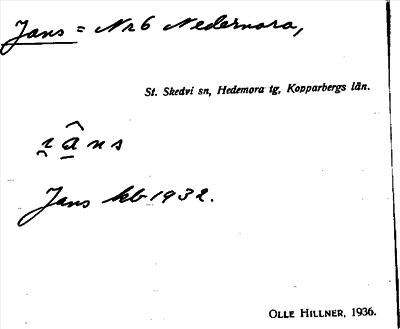 Jans = Nr 6 Nedernora,
St. Skedvi sn, Hedemora tg, Kopparbergs län.
i̯ ȃ̲ n s
Jans kb 1932.
OLLE HILLNER, 1936.